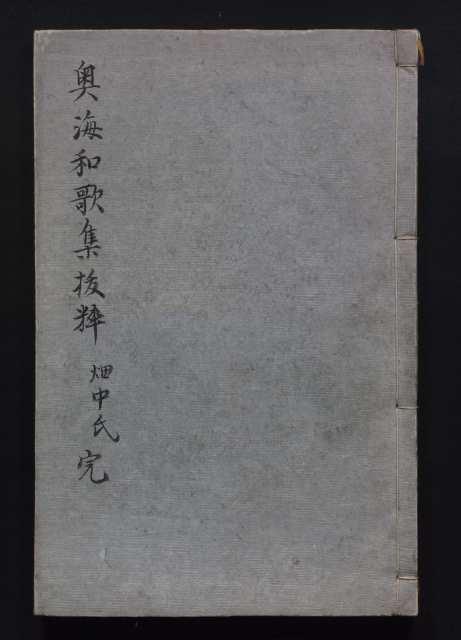 奥海和歌集抜粋 畑中氏 完